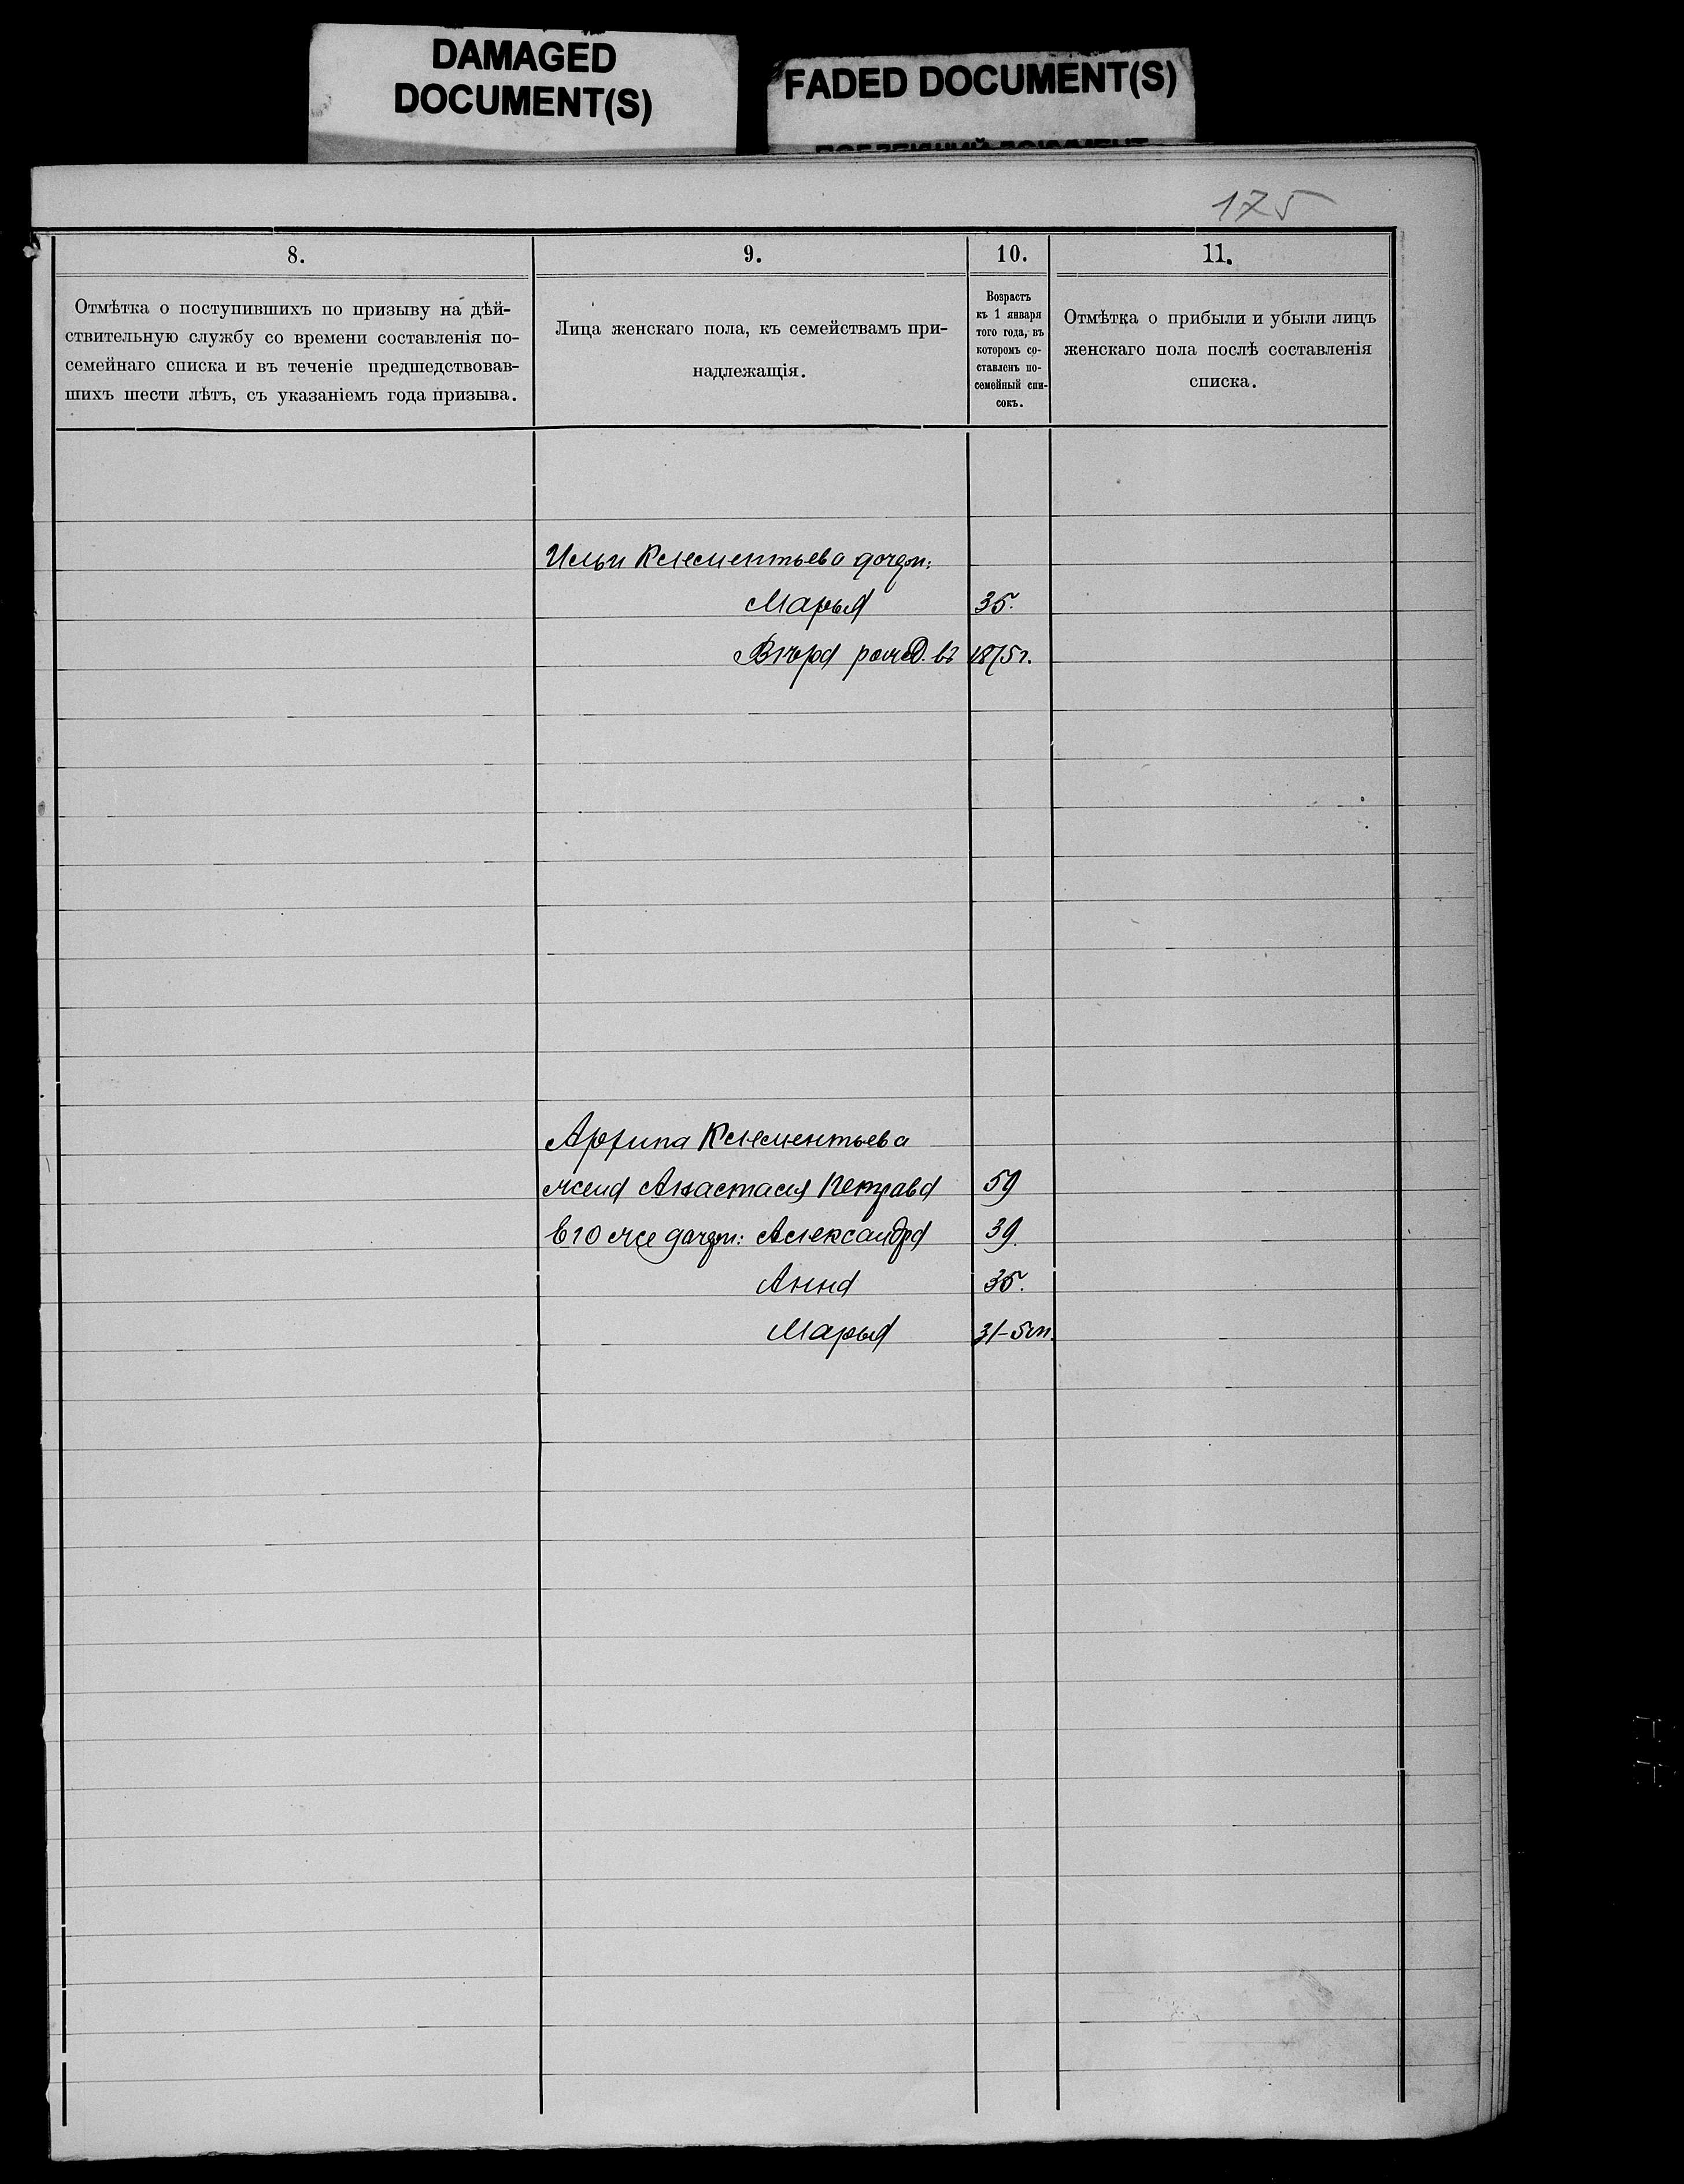 DAMAGED
DOCUMENT(S)
FADED DOCUMENT(S)
175
8.
9.
10.
11.
Отмѣтка о поступившихъ по призыву на дѣй-
ствительную службу со времени составленія по-
семейнаго списка и въ теченіе предшедствовав-
шихъ шести лѣтъ, съ указаніемъ года призыва.
Лица женскаго пола, къ семействамъ при-
надлежащія.
Возрастъ
къ 1 января
того года, въ
которомъ со-
ставленъ по-
семейный спи-
сокъ.
Отмѣтка о прибыли и убыли лицъ
женскаго пола послѣ составленія
списка.
Ильи Клементьева дочери:
Марья 35.
Вѣра рожд. въ 1875 г.
Архипа Клементьева
жена Анастасия Петрова 59
Его же дочери: Александра 39.
Анна 35.
Марья 31-5 м.